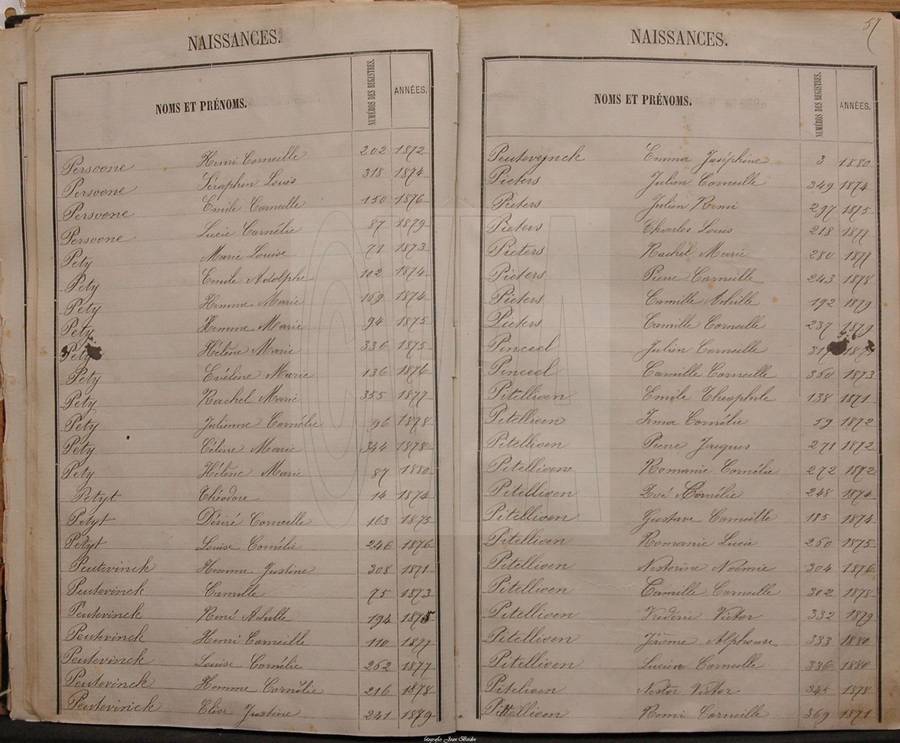 NAISSANCES.
NOMS ET PRÉNOMS. NUMÉROS DES REGISTRES. ANNÉES.
Persoone Henri Corneille 202 1872
Persoone Séraphin Louis 318 1874
Persoone Emile Corneille 150 1876
Persoone Lucie Cornélie 87 1879
Pety Marie Louise 71 1873
Pety Emile Adolphe 102 1874
Pety Hemma Marie 169 1874
Pety Hemma Marie 94 1875
Pety Hélène Marie 336 1875
Pety Evéline Marie 136 1876
Pety Rachel Marie 355 1877
Pety Julienne Cornélie 96 1878
Pety Céline Marie 344 1878
Pety Hélène Marie 87 1880
Petyt Théodore 14 1874
Petyt Désiré Corneille 163 1875
Petyt Louise Cornélie 246 1876
Peutevinck Hemma Justine 208 1871
Peutevinck Camille 75 1873
Peutevinck Remi Achille 194 1875
Peutevinck Henri Corneille 110 1877
Peutevinck Louise Cornélie 262 1877
Peutevinck Hemma Cornélie 216 1878
Peutevinck Elise Justine 241 1879
57
NAISSANCES.
NOMS ET PRÉNOMS. NUMÉROS DES REGISTRES. ANNÉES.
Peutevynck Emma Joséphine 3 1880
Pieters Julien Corneille 349 1874
Pieters Julien Remi 297 1875
Pieters Charles Louis 218 1877
Pieters Rachel Marie 280 1877
Pieters Pierre Corneille 243 1878
Pieters Camille Achille 192 1879
Pieters Camille Corneille 237 1879
Pinceel Julien Corneille
Pinceel Camille Corneille 350 1873
Pitellioen Emile Théophile 138 1871
Pitellioen Irma Cornélie 59 1872
Pitellioen Pierre Jacques 271 1872
Pitellioen Romanie Cornélie 272 1872
Pitellioen Zoé Cornélie 248 1874
Pitellioen Gustave Corneille 185 1874
Pitellioen Romanie Lucie 260 1875
Pitellioen Nestorine Noémie 304 1876
Pitellioen Camille Corneille 302 1878
Pitellioen Victor 332 1879
Pitellioen Jérôme Alphonse 333 1880
Pitellioen Lucien Corneille 336 1880
Pitelioen Nestor Victor 345 1878
Pittellioen Remi Corneille 369 1871